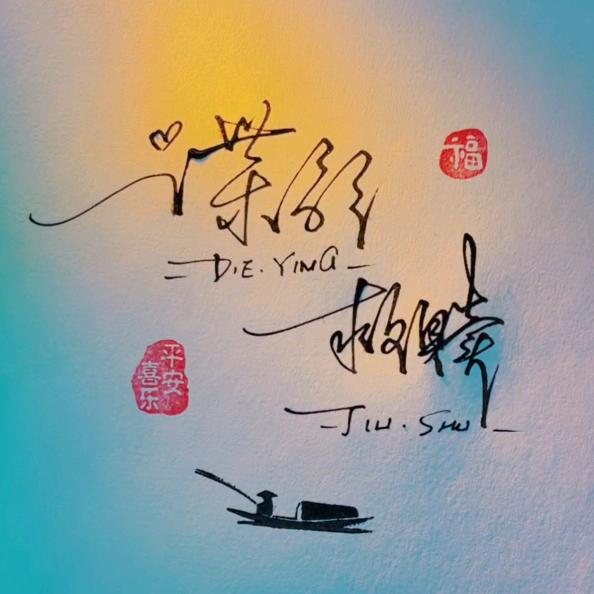 谍影
福
DIE.YING
救赎
平安
喜乐
JIU.SHU